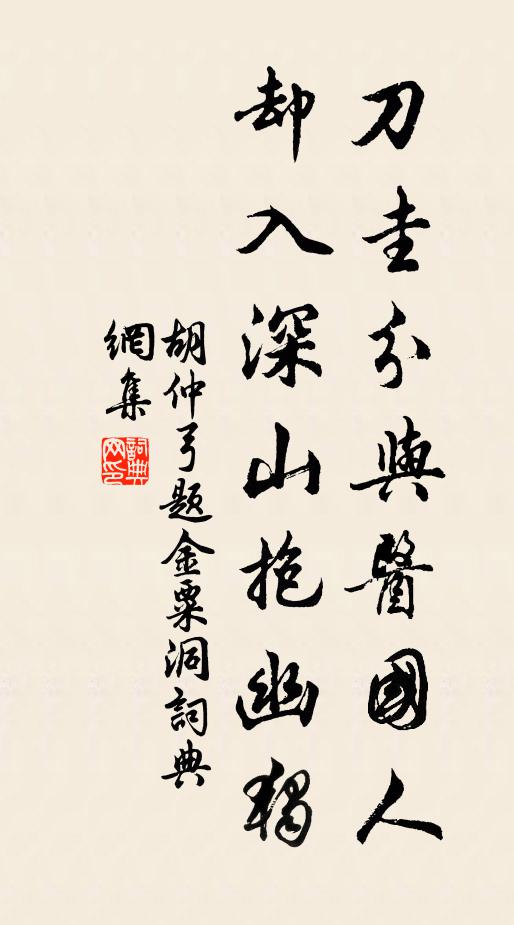 刀圭分與醫國人
却入深山抱幽獨
胡仲弓題金粟洞詞典
網集
詞典
网印